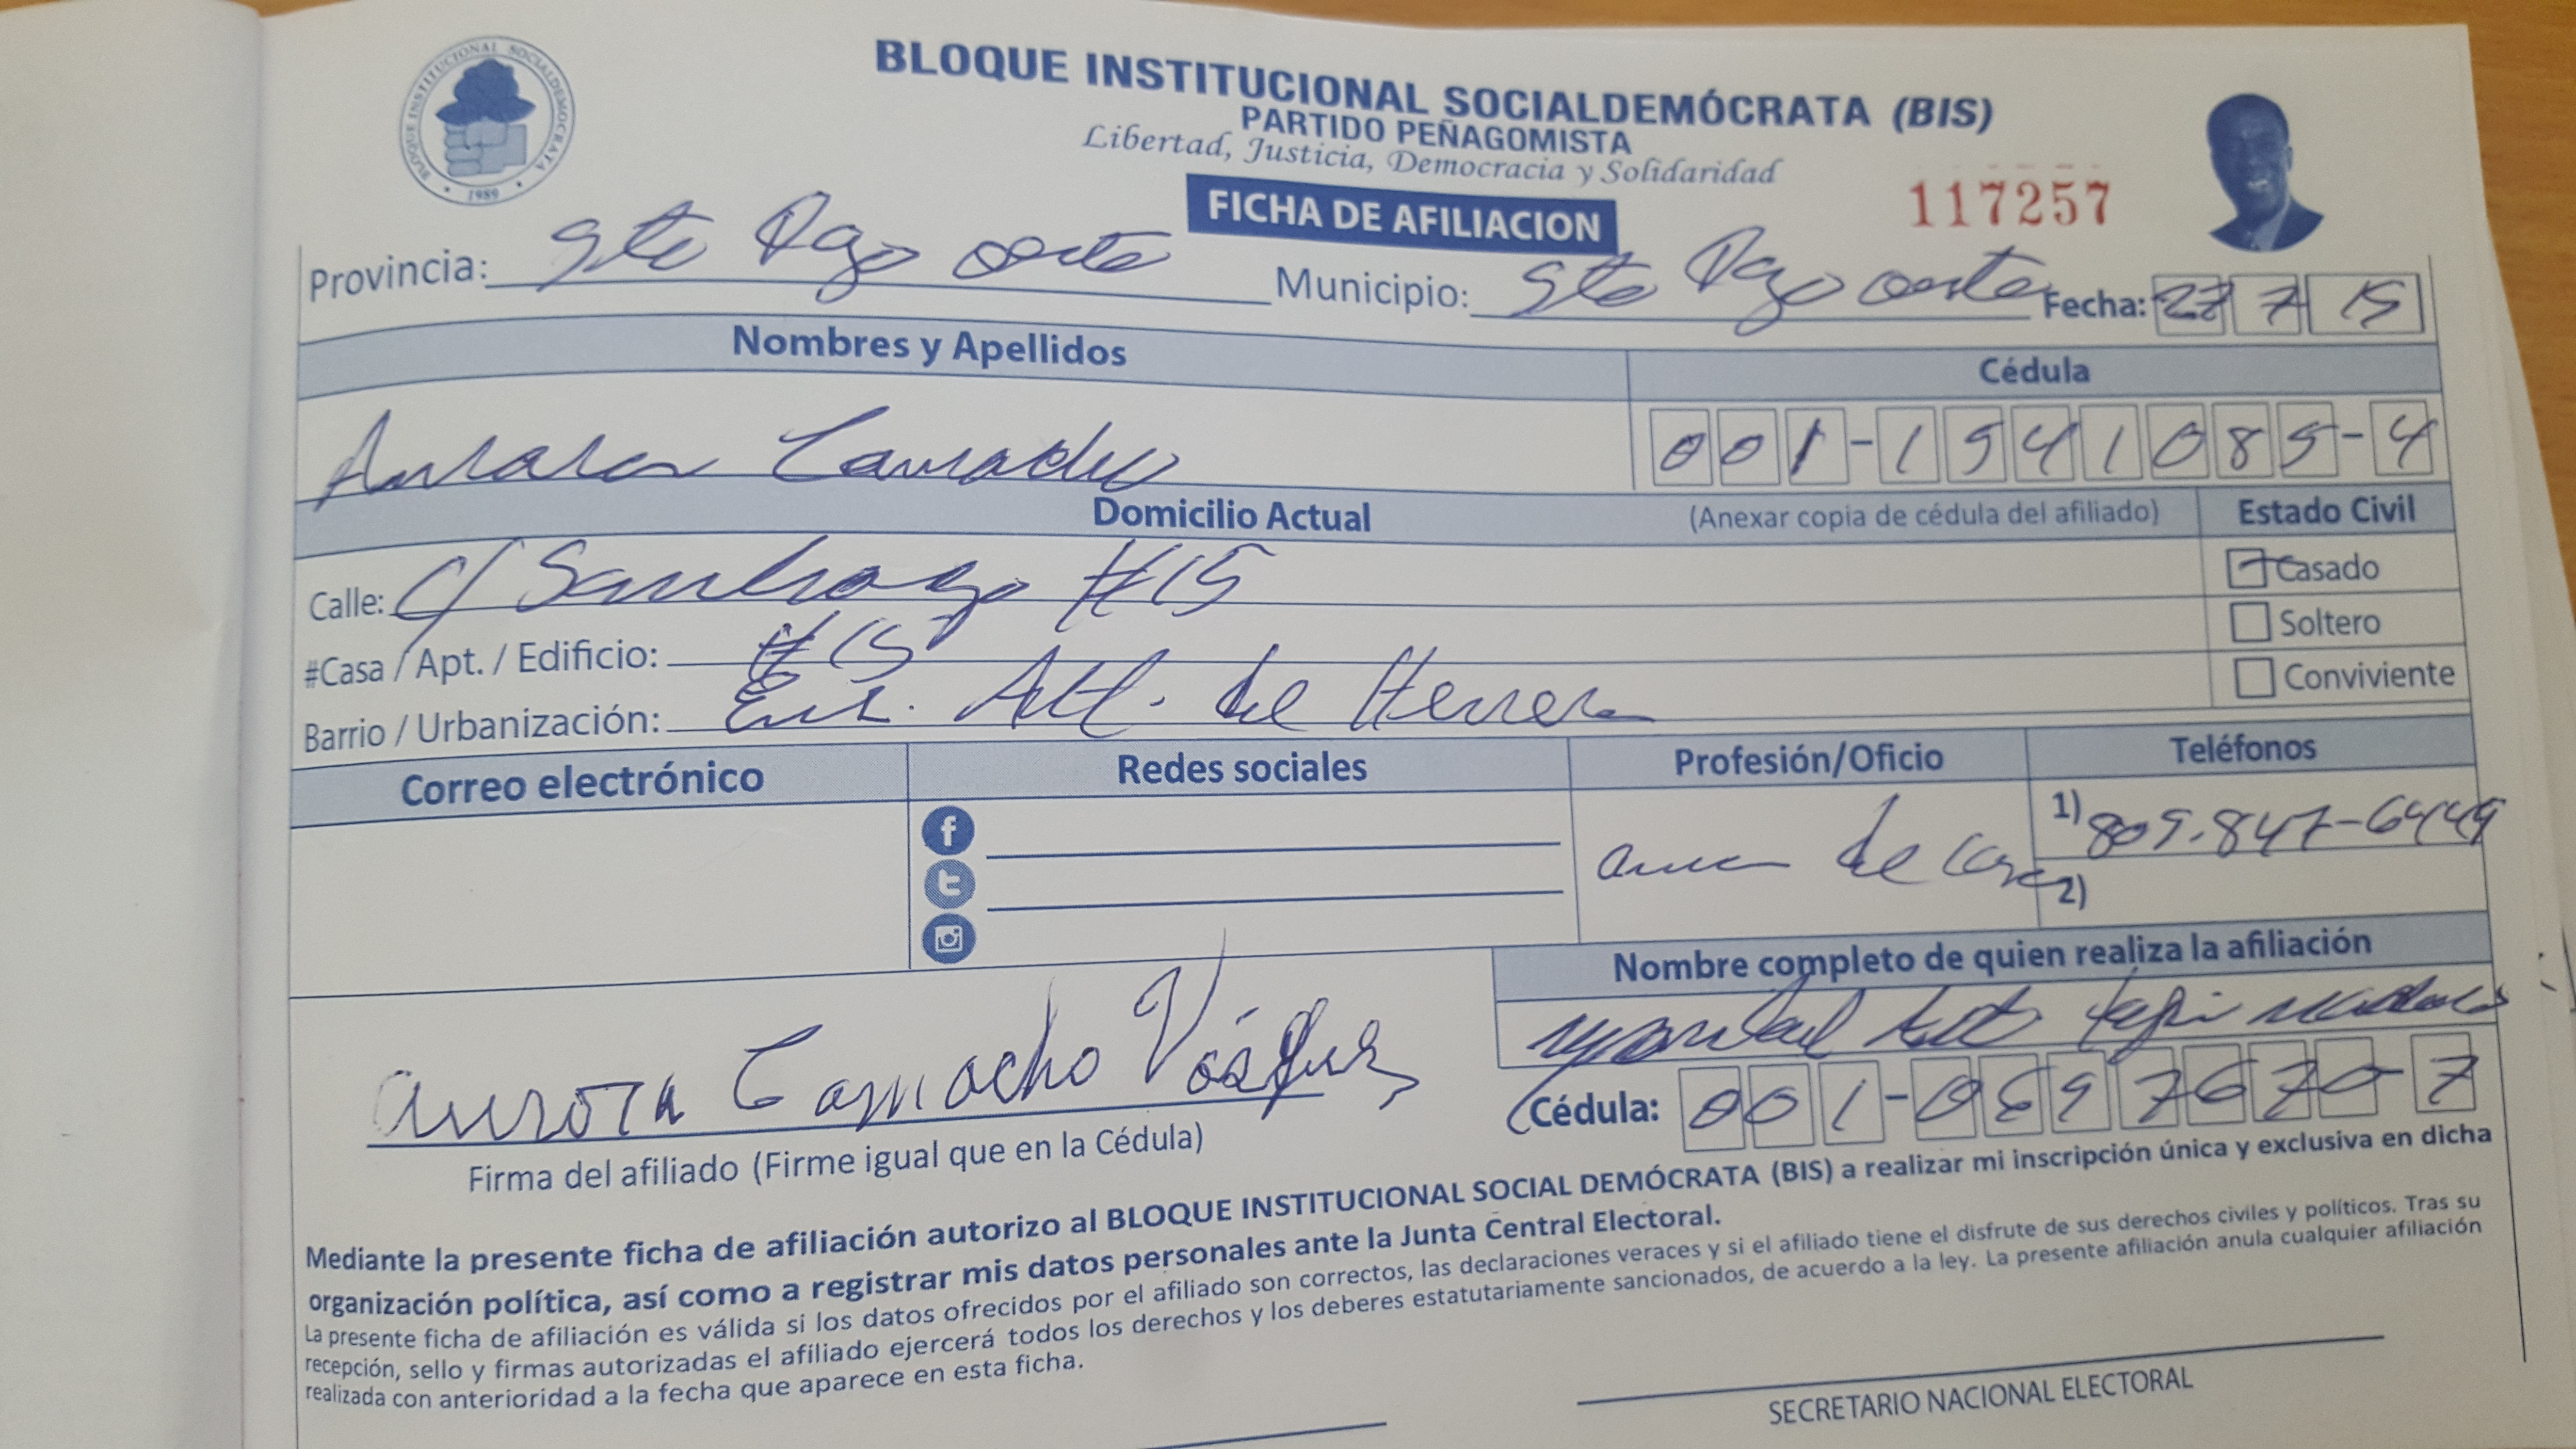 BLOQUE INSTITUCIONAL SOCIALDEMÓCRATA (BIS)
PARTIDO PEÑAGOMISTA
Libertad, Justicia, Democracia y Solidaridad
BLOQUE INSTITUCIONAL SOCIALDEMOCRATA
1989
FICHA DE AFILIACION
117257
Provincia: Sto Dgo oeste Municipio: Sto Dgo oeste Fecha: 27 7 15
Nombres y Apellidos Cédula
Aurora Camacho 001-1541085-4
Domicilio Actual (Anexar copia de cédula del afiliado) Estado Civil
Calle: C/ Santiago #15 Casado
#Casa / Apt. / Edificio: #15 Soltero
Barrio / Urbanización: Ens. Alt. de Herrera Conviviente
Correo electrónico Redes sociales Profesión/Oficio Teléfonos
ama de casa
1) 809-847-6449
2)
Nombre completo de quien realiza la afiliación
Aurora Camacho Vásquez
Cédula: 001-0597670-7
Firma del afiliado (Firme igual que en la Cédula)
Mediante la presente ficha de afiliación autorizo al BLOQUE INSTITUCIONAL SOCIAL DEMÓCRATA (BIS) a realizar mi inscripción única y exclusiva en dicha
organización política, así como a registrar mis datos personales ante la Junta Central Electoral.
La presente ficha de afiliación es válida si los datos ofrecidos por el afiliado son correctos, las declaraciones veraces y si el afiliado tiene el disfrute de sus derechos civiles y políticos. Tras su
recepción, sello y firmas autorizadas el afiliado ejercerá todos los derechos y los deberes estatutariamente sancionados, de acuerdo a la ley. La presente afiliación anula cualquier afiliación
realizada con anterioridad a la fecha que aparece en esta ficha.
SECRETARIO NACIONAL ELECTORAL